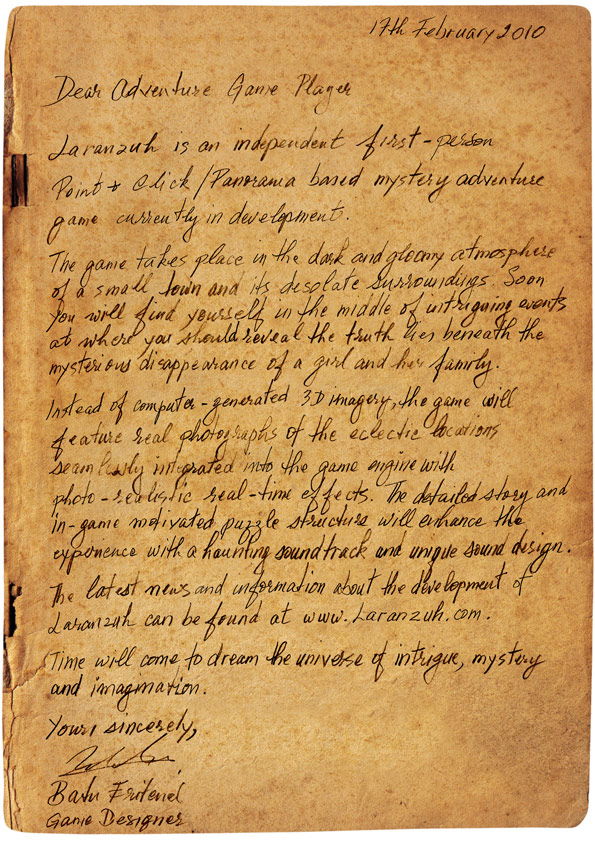 17th February 2010
Dear Adventure Game Player
Laranzuh is an independent first-person
Point & Click/Panorama based mystery adventure
game currently in development.
The game takes place in the dark and gloomy atmosphere
of a small town and its desolate surroundings. Soon
you will find yourself in the middle of intriguing events
at where you should reveal the truth lies beneath the
mysterious disappearance of a girl and her family.
Instead of computer-generated 3D imagery, the game will
feature real photographs of the eclectic locations
seamlessly integrated into the game engine with
photo-realistic real-time effects. The detailed story and
in-game motivated puzzle structure will enhance the
experience with a haunting soundtrack and unique sound design.
The latest news and information about the development of
Laranzuh can be found at www.Laranzuh.com.
Time will come to dream the universe of intrigue, mystery
and imagination.
Yours sincerely,
Batu
Game Designer